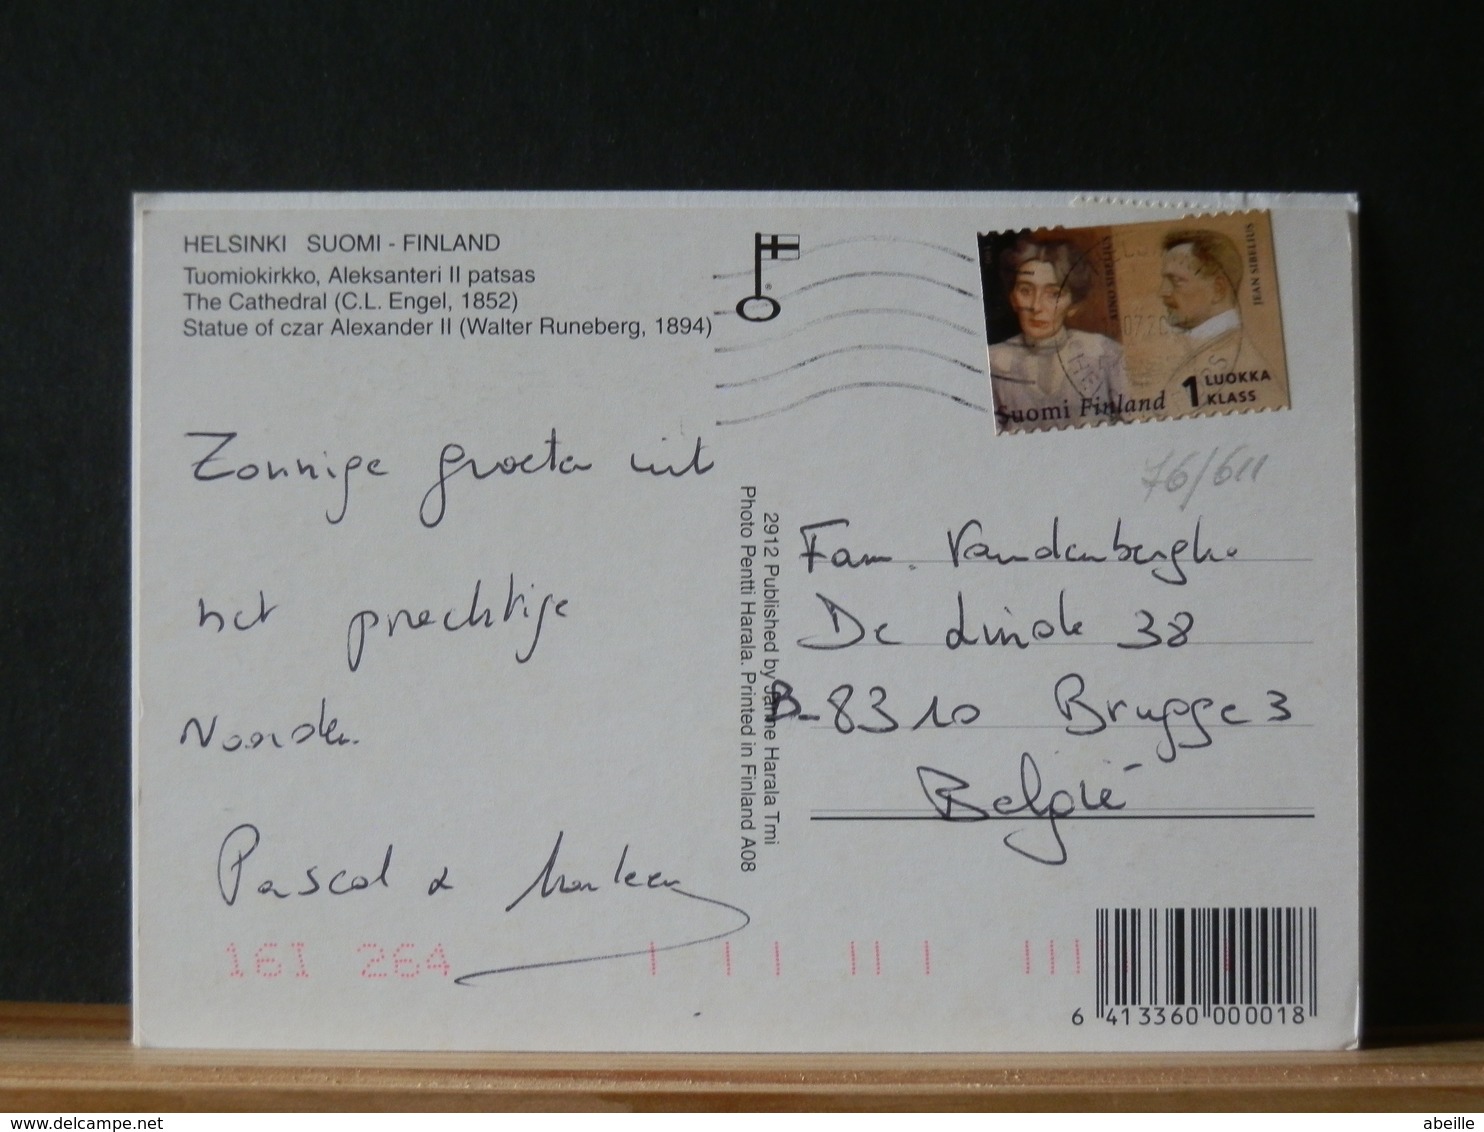 HELSINKI SUOMI - FINLAND
Tuomiokirkko, Aleksanteri II patsas
The Cathedral (C.L. Engel, 1852)
Statue of czar Alexander II (Walter Runeberg, 1894)
AINO SIBELIUS
JEAN SIBELIUS
1 LUOKKA
KLASS
Suomi Finland
76/611
Zonnige groeten uit
het prachtige
Noorden.
Pascal &
2912 Published by Janne Harala Tmi
Photo Pentti Harala. Printed in Finland A08
Fam. Vandenberghe
De Linde 38
B-8310 Brugge 3
België
16I 264
6 413360 000018
abeille